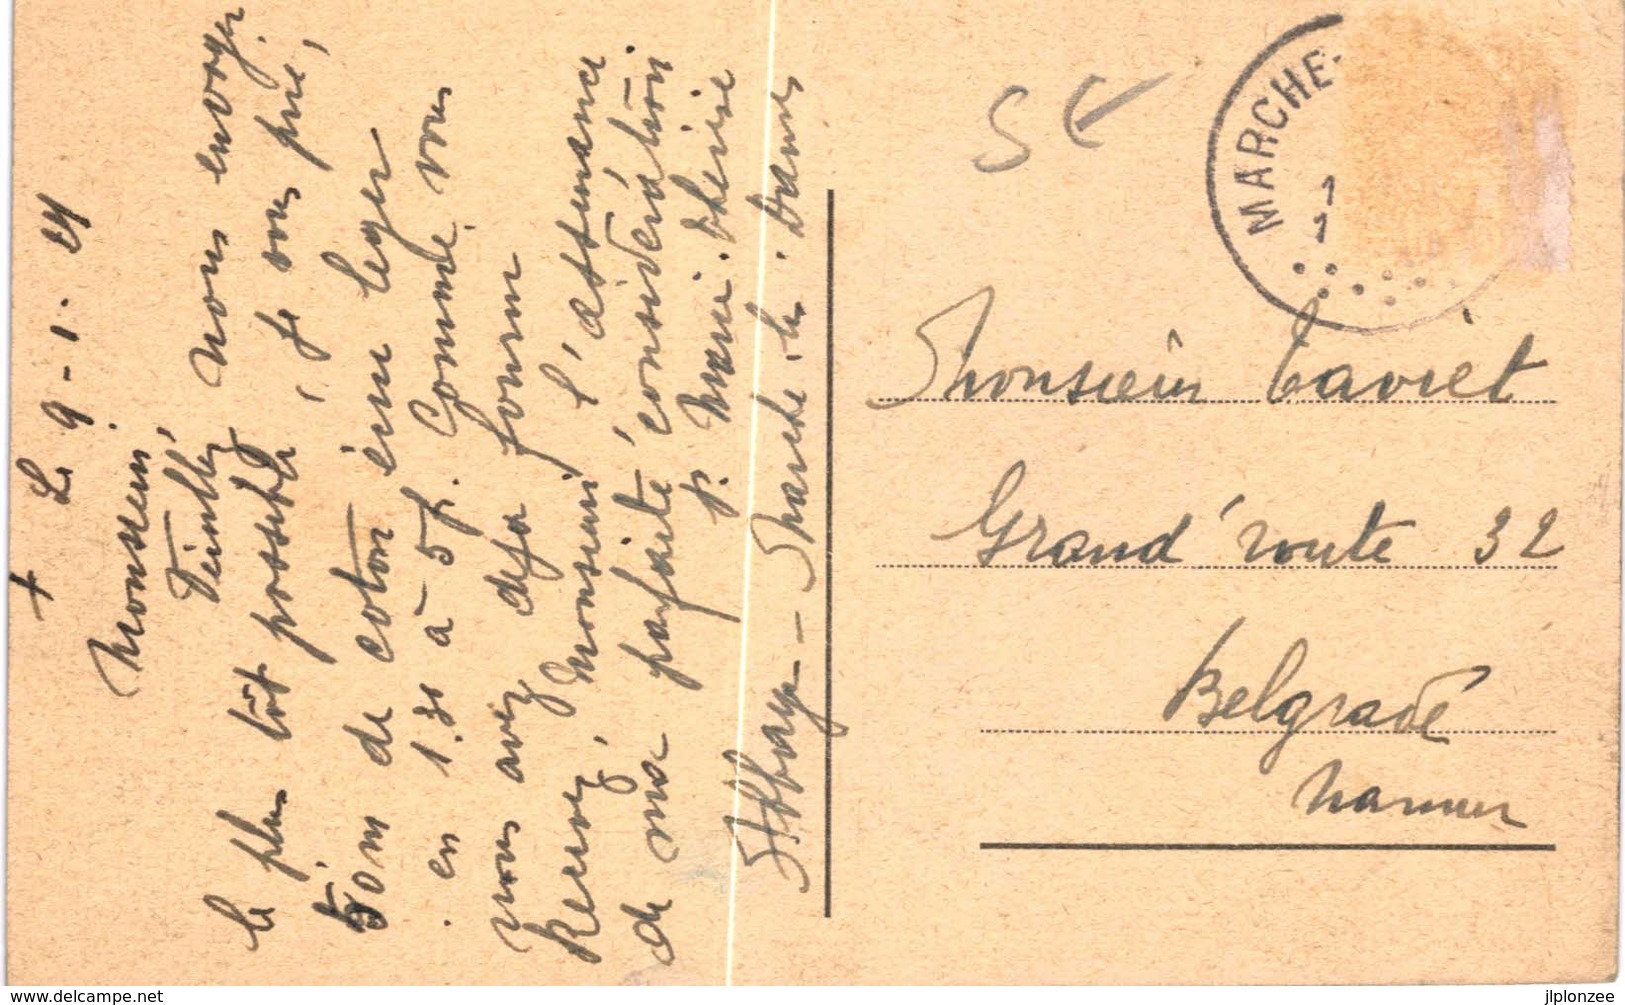 + Le 9-1.
Monsieur,
Veuillez nous envoyer
le plus tôt possible, je vous prie,
50m de coton écru léger
en 1.30 à 5f. Comme vous
nous avez déjà fourni
Recevez, Monsieur, l'assurance
de ma parfaite considération
p. Marie. Thérèse
Abbaye - Marche. les. Dames
5€
MARCHE.
Monsieur Taviet
Grand'route 32
Belgrade
Namur
www.delcampe.net
jlplonzee